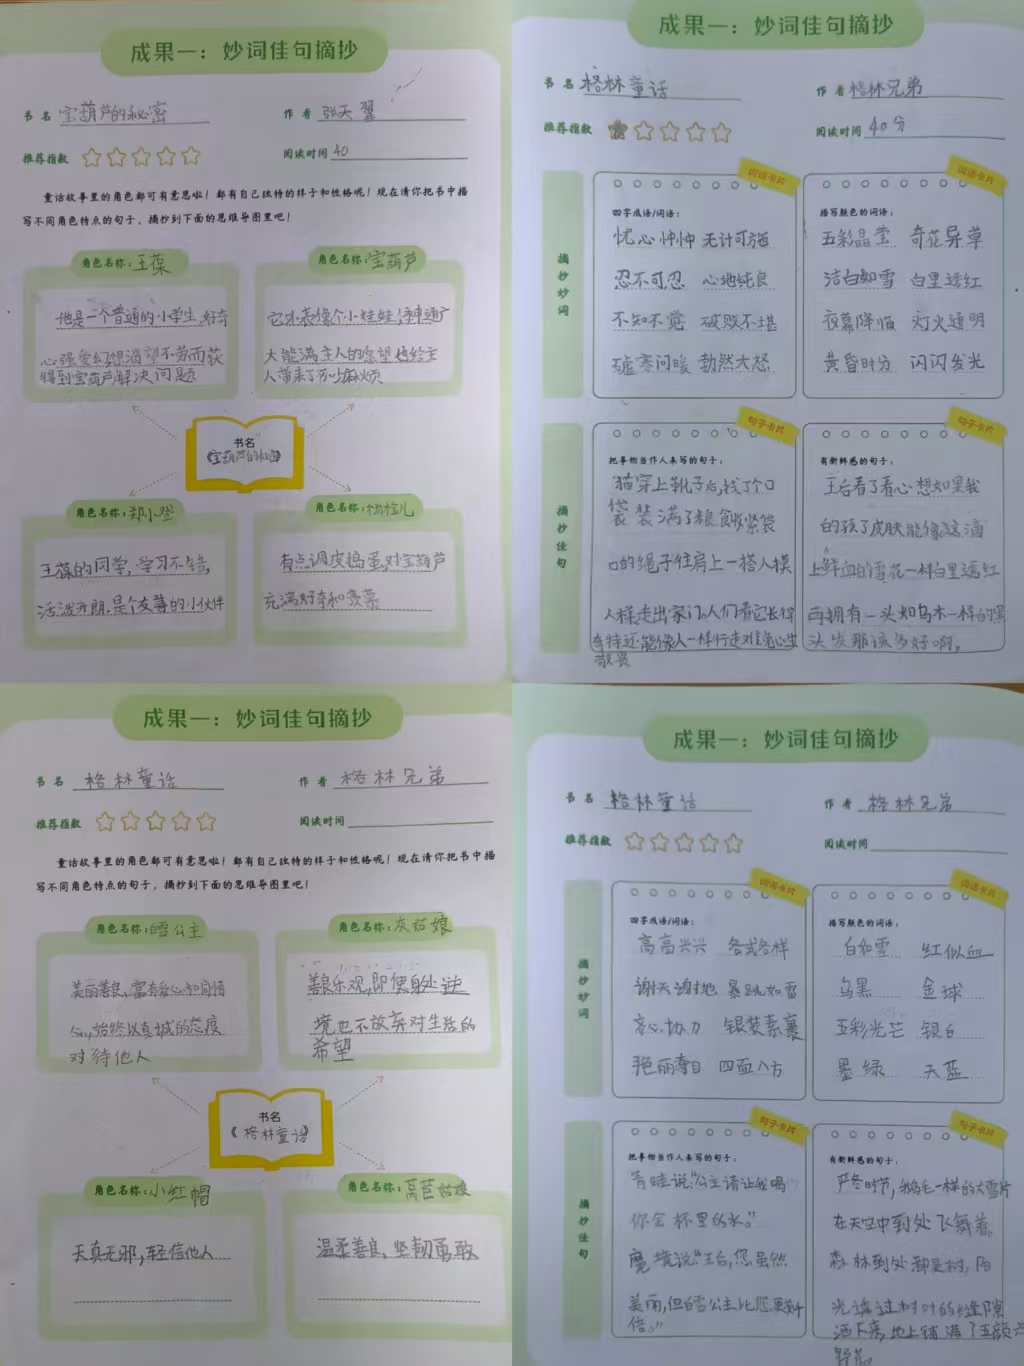 成果一：妙词佳句摘抄
书 名 宝葫芦的秘密
作 者 张天翼
推荐指数
阅读时间 40
童话故事里的角色都可有意思啦！都有自己独特的样子和性格呢！现在请你把书中描
写不同角色特点的句子，摘抄到下面的思维导图里吧！
角色名称：王葆
他是一个普通的小学生，好奇
心强爱幻想渴望不劳而获
得到宝葫芦解决问题
角色名称：宝葫芦
它外表像个小娃娃，神通广
大能满主人的愿望也给主
人带来了不少麻烦
书名
《宝葫芦的秘密》
角色名称：郑小登
王葆的同学，学习不错，
活泼开朗，是个友善的小伙伴
角色名称：杨拴儿
有点调皮捣蛋，对宝葫芦
充满好奇和羡慕
成果一：妙词佳句摘抄
书 名 格林童话
作 者 格林兄弟
推荐指数
阅读时间 40分
摘抄妙词
词语卡片
四字成语/词语：
忧心忡忡 无计可施
忍不可忍 心地纯良
不知不觉 破败不堪
嘘寒问暖 勃然大怒
词语卡片
描写颜色的词语：
五彩晶莹 奇花异草
洁白如雪 白里透红
夜幕降临 灯火通明
黄昏时分 闪闪发光
摘抄佳句
句子卡片
把事物当作人来写的句子：
猫穿上靴子后，找了个口
袋装满了粮食收紧袋
口的绳子往肩上一搭人模
人样走出家门。人们看它长得
奇特还能像人一样行走难免心生
敬畏
句子卡片
有新鲜感的句子：
王后看了看心想如果我
的孩子皮肤能像这滴
上鲜血的雪花一样白里透红
再拥有一头如乌木一样的黑
头发那该多好啊。
成果一：妙词佳句摘抄
书 名 格林童话
作 者 格林兄弟
推荐指数
阅读时间
童话故事里的角色都可有意思啦！都有自己独特的样子和性格呢！现在请你把书中描
写不同角色特点的句子，摘抄到下面的思维导图里吧！
角色名称：白雪公主
美丽善良，富有爱心和同情
心，始终以真诚的态度
对待他人
角色名称：灰姑娘
善良乐观，即使身处逆
境也不放弃对生活的
希望
书名
《格林童话》
角色名称：小红帽
天真无邪，轻信他人
角色名称：莴苣姑娘
温柔善良，坚韧勇敢
成果一：妙词佳句摘抄
书 名 格林童话
作 者 格林兄弟
推荐指数
阅读时间
摘抄妙词
词语卡片
四字成语/词语：
高高兴兴 各式各样
谢天谢地 暴跳如雷
齐心协力 银装素裹
艳丽夺目 四面八方
词语卡片
描写颜色的词语：
白如雪 红似血
乌黑 金球
五彩光芒 银白
墨绿 天蓝
摘抄佳句
句子卡片
把事物当作人来写的句子：
青蛙说“公主请让我喝
你金杯里的水。”
魔境说“王后，您虽然
美丽，但白雪公主比您更美十
倍。”
句子卡片
有新鲜感的句子：
严冬时节，鹅毛一样的大雪片
在天空中到处飞舞着。
森林到处都是树，阳
光透过树叶的缝隙
洒下来，地上铺满了五颜六
野花。